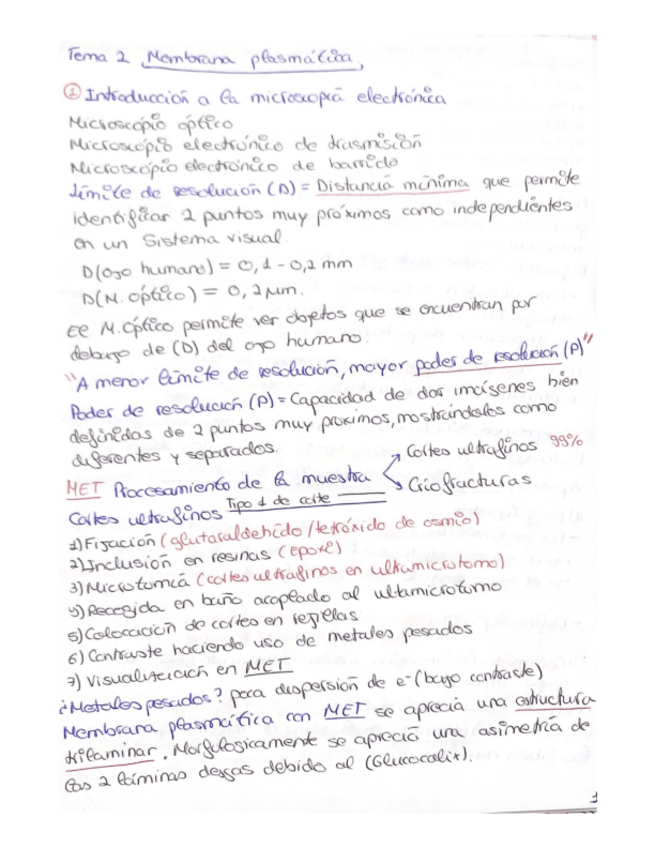 Tema 2 Membrana plasmática.
① Introducción a la microscopía electrónica
Microscopio óptico
Microscopio electrónico de trasmisión
Microscopio electrónico de barrido
Límite de resolución (D) = Distancia mínima que permite
identificar 2 puntos muy próximos como independientes
en un sistema visual.
D(ojo humano) = 0,1 - 0,2 mm
D(M. óptico) = 0,2 μm.
El M. óptico permite ver objetos que se encuentran por
debajo de (D) del ojo humano.
"A menor límite de resolución, mayor poder de resolución (P)"
Poder de resolución (P) = Capacidad de dar imágenes bien
definidas de 2 puntos muy proximos, mostrándolos como
diferentes y separados.
MET Procesamiento de la muestra
Cortes ultrafinos 99%
Criofracturas
Cortes ultrafinos Tipo 1 de corte
1) Fijación (glutaraldehido / tetróxido de osmio)
2) Inclusión en resinas (Epoxi)
3) Microtomía (cortes ultrafinos en ultramicrotomo)
4) Recogida en baño acoplado al ultamicrotomo
5) Colocación de cortes en rejillas
6) Contraste haciendo uso de metales pesados
7) Visualización en MET
¿Metales pesados? para dispersión de e- (bajo contraste)
Membrana plasmática con MET se aprecia una estructura
trilaminar. Morfologicamente se aprecia una asimetría de
las 2 láminas densas debido al (Glucocalix).
1